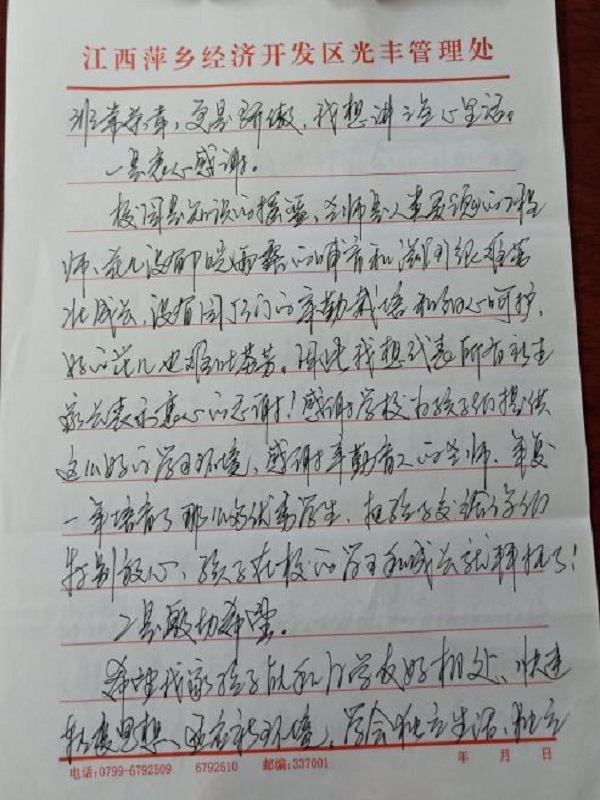 江西萍乡经济开发区光丰管理处
非常荣幸,更是骄傲,我想讲三句心里话。
一是衷心感谢。
校园是知识的摇篮、老师是人类灵魂的工程
师、花儿没有阳光雨露的哺育和滋润很难茁
壮成长,没有园丁们的辛勤栽培和细心呵护,
好的花儿也难吐芬芳。因此我想代表所有新生
家长表示衷心的感谢!感谢学校为孩子们提供
这么好的学习环境,感谢辛勤育人的老师、年复
一年培育了那么多优秀学生,把孩子交给你们
特别放心、孩子在校的学习和成长就拜托了!
二是殷切希望。
希望我家孩子能和同学友好相处、快速
转变思想、适应新环境,学会独立生活、独立
电话:0799-6792509 6792510 邮编:337001 年 月 日